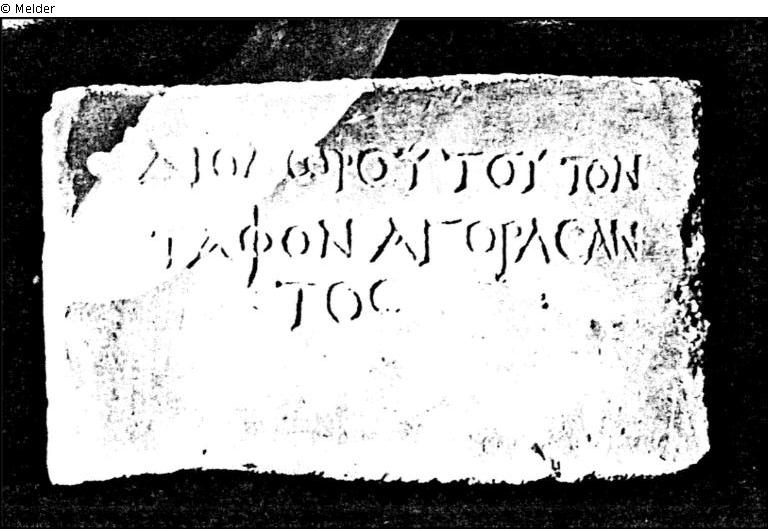 © Melder
ΔΙΟΔΩΡΟΥ ΤΟΥ ΤΟΝ
ΤΑΦΟΝ ΑΓΟΡΑCΑΝ
ΤΟC